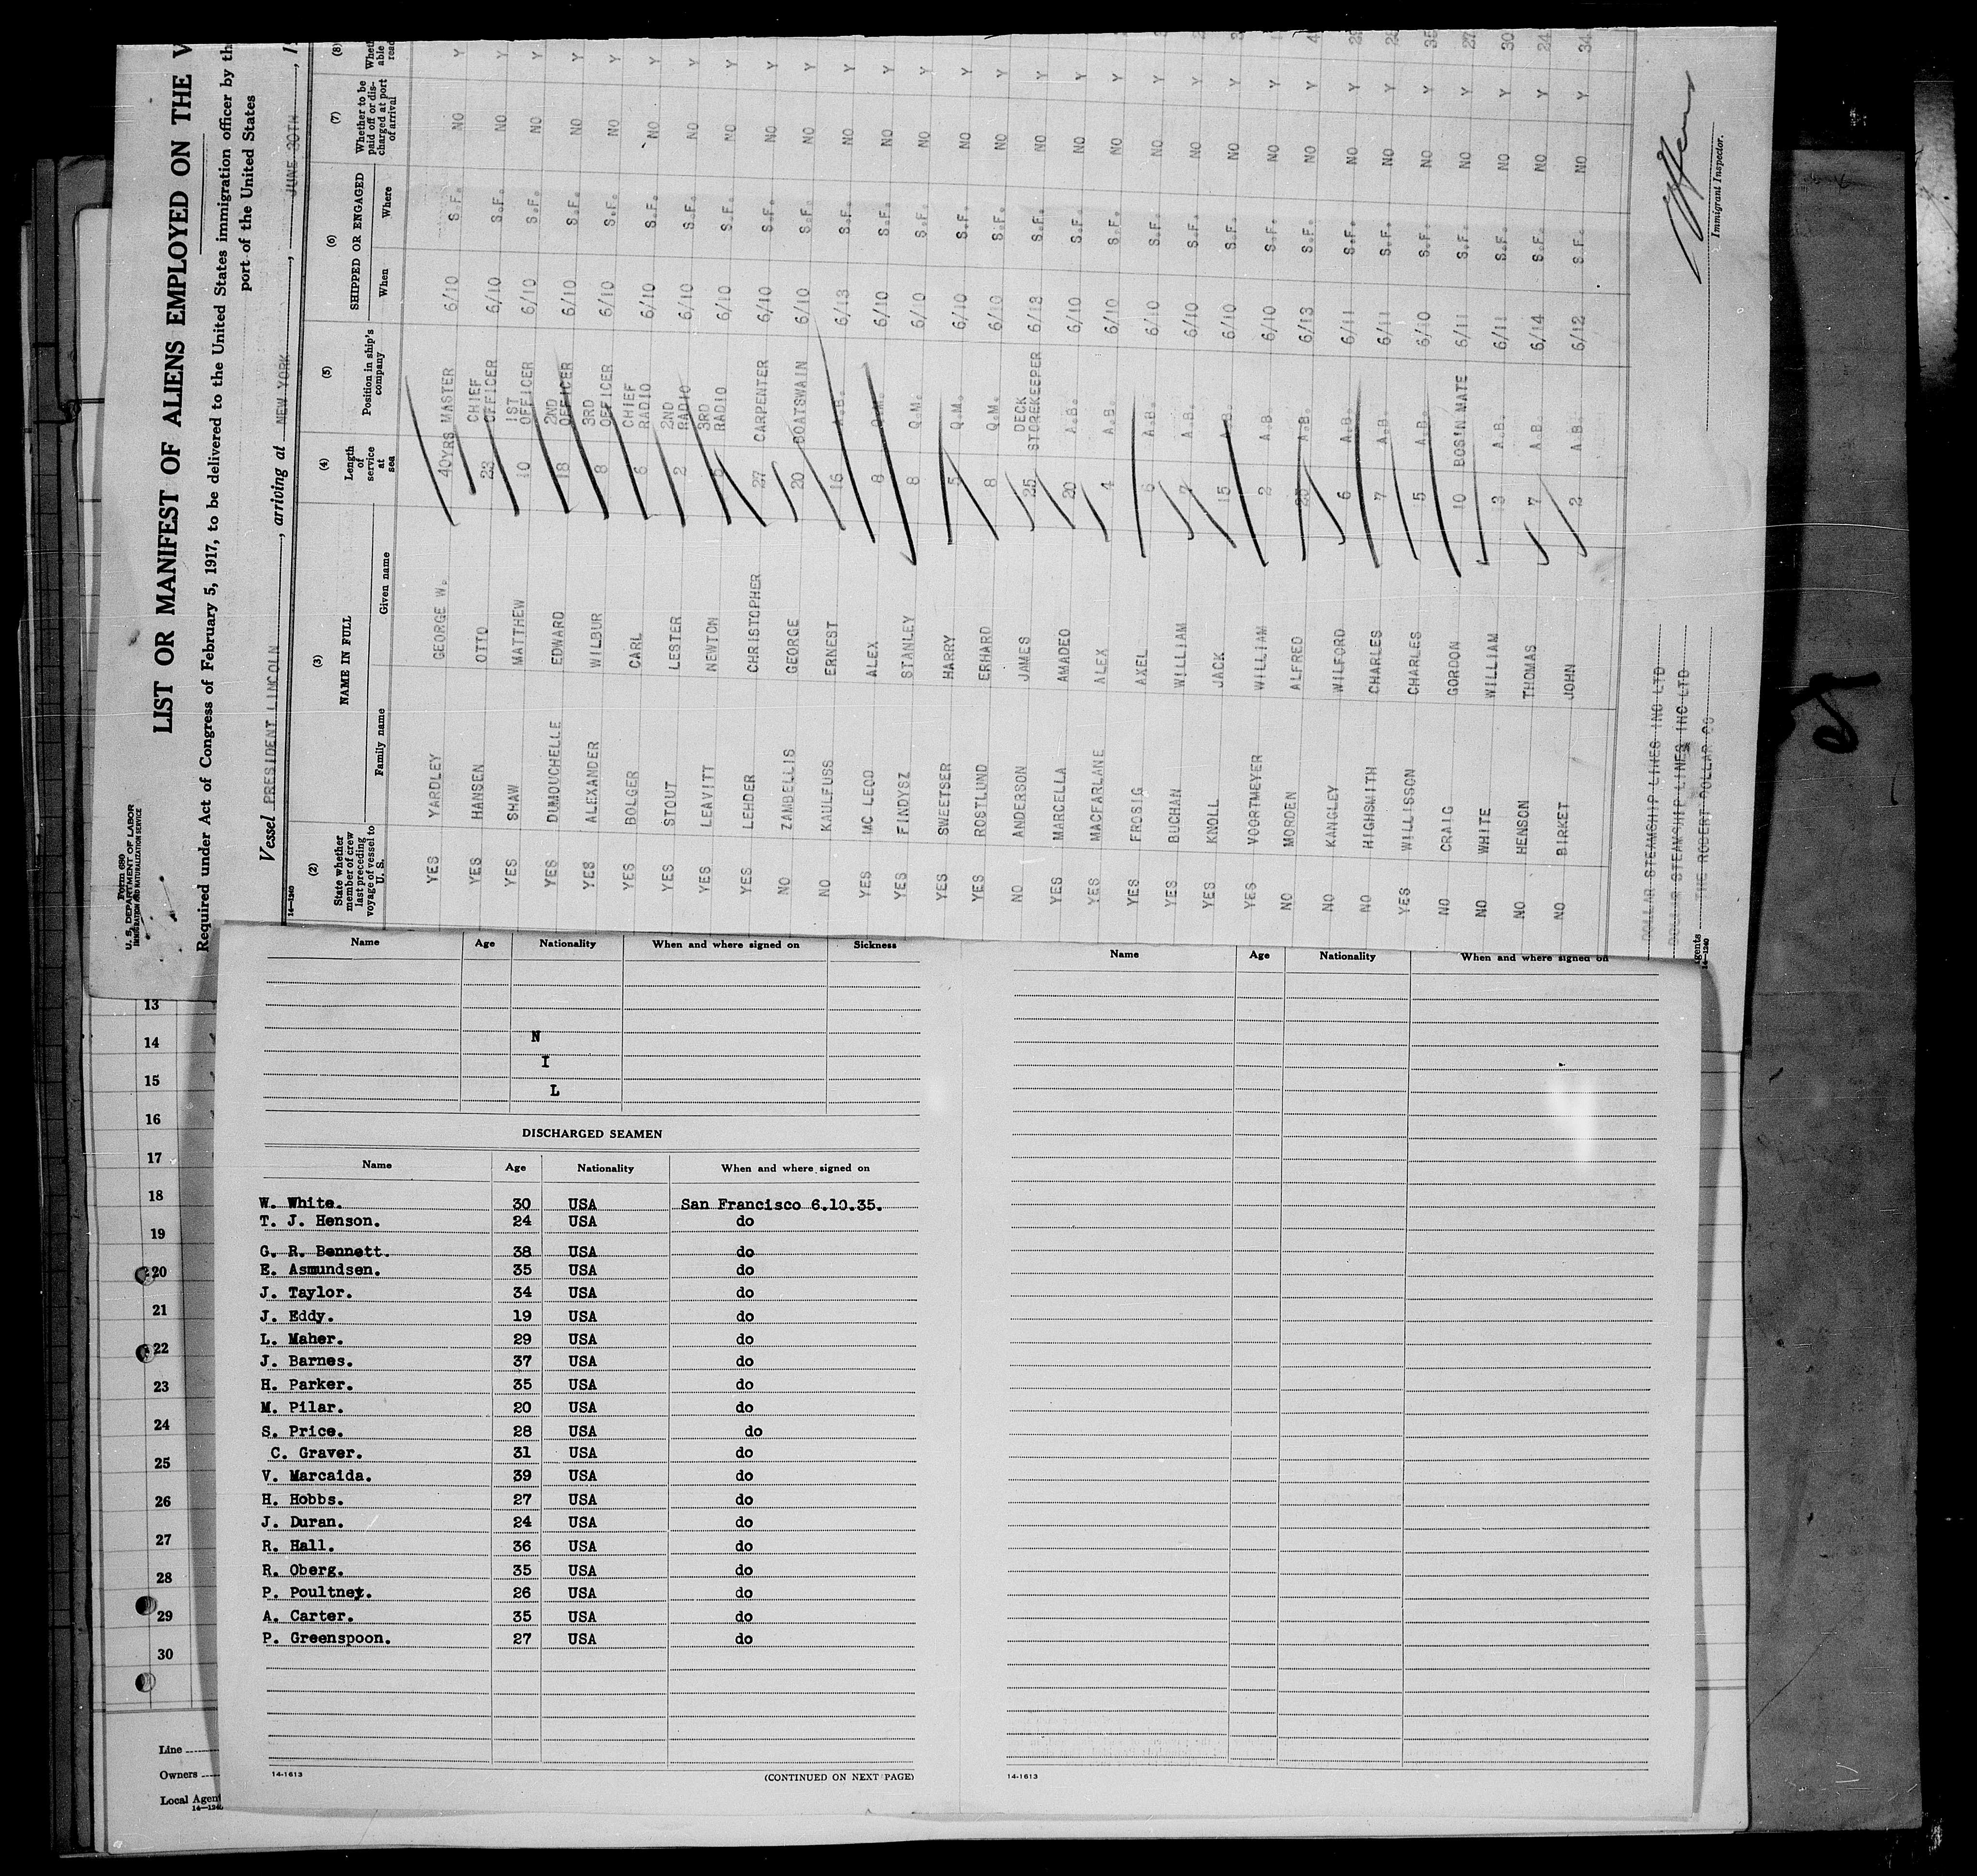 Form 680
U. S. DEPARTMENT OF LABOR
IMMIGRATION AND NATURALIZATION SERVICE
LIST OR MANIFEST OF ALIENS EMPLOYED ON THE
Required under Act of Congress of February 5, 1917, to be delivered to the United States immigration officer by th
port of the United States
Vessel PRESIDENT LINCOLN, arriving at NEW YORK, JUNE 30TH, 1
14-1240
(2) (3) (4) (5) (6) (7) (8)
State whether member of crew last preceding voyage of vessel to U. S. NAME IN FULL Family name Given name Length of service at sea Position in ship's company SHIPPED OR ENGAGED When Where Whether to be paid off or discharged at port of arrival
YES YARDLEY GEORGE W. 40YRS MASTER 6/10 S.F. NO Y
YES HANSEN OTTO 23 CHIEF OFFICER 6/10 S.F. NO Y
YES SHAW MATTHEW 10 1ST OFFICER 6/10 S.F. NO Y
YES DUMOUCHELLE EDWARD 18 2ND OFFICER 6/10 S.F. NO Y
YES ALEXANDER WILBUR 8 3RD OFFICER 6/10 S.F. NO Y
YES BOLGER CARL 6 CHIEF RADIO 6/10 S.F. NO Y
YES STOUT LESTER 2 2ND RADIO 6/10 S.F. NO Y
YES LEAVITT NEWTON 5 3RD RADIO 6/10 S.F. NO Y
YES LEHDER CHRISTOPHER 27 CARPENTER 6/10 S.F. NO Y
NO ZAMBELLIS GEORGE 20 BOATSWAIN 6/10 S.F. NO Y
NO KAULFUSS ERNEST 16 A.B. 6/13 S.F. NO Y
YES MC LEOD ALEX 8 Q.M. 6/10 S.F. NO Y
YES FINDYSZ STANLEY 8 Q.M. 6/10 S.F. NO Y
YES SWEETSER HARRY 5 Q.M. 6/10 S.F. NO Y
YES ROSTLUND ERHARD 8 Q.M. 6/10 S.F. NO Y
NO ANDERSON JAMES 25 DECK STOREKEEPER 6/13 S.F. NO Y
YES MARCELLA AMADEO 20 A.B. 6/10 S.F. NO Y
YES MACFARLANE ALEX 4 A.B. 6/10 S.F. NO Y
YES FROSIG AXEL 6 A.B. 6/10 S.F. NO Y
YES BUCHAN WILLIAM 7 A.B. 6/10 S.F. NO Y
YES KNOLL JACK 15 A.B. 6/10 S.F. NO Y
YES VOORTMEYER WILLIAM 2 A.B 6/10 S.F. NO Y
NO MORDEN ALFRED A.B. 6/13 S.F. NO Y
NO KANGLEY WILFORD 6 A.B. 6/11 S.F. NO Y
NO HIGHSMITH CHARLES 7 A.B. 6/11 S.F. NO Y
YES WILLISSON CHARLES 5 A.B. 6/10 S.F. NO Y 35
NO CRAIG GORDON 10 BOS'N MATE 6/11 S.F. NO Y 27
NO WHITE WILLIAM 13 A.B. 6/11 S.F. NO Y 30
NO HENSON THOMAS 7 A.B. 6/14 S.F. NO Y 24
NO BIRKET JOHN 2 A.B. 6/12 S.F. NO Y 34
DOLLAR STEAMSHIP LINES INC LTD
DOLLAR STEAMSHIP LINES INC LTD
THE ROBERT DOLLAR CO
gents
14-1240
Immigrant Inspector.
Name Age Nationality When and where signed on Sickness
N
I
L
DISCHARGED SEAMEN
Name Age Nationality When and where signed on
W. White. 30 USA San Francisco 6.10.35.
T. J. Henson. 24 USA do
G. R. Bennett. 38 USA do
E. Asmundsen. 35 USA do
J. Taylor. 34 USA do
J. Eddy. 19 USA do
L. Maher. 29 USA do
J. Barnes. 37 USA do
H. Parker. 35 USA do
M. Pilar. 20 USA do
S. Price. 28 USA do
C. Graver. 31 USA do
V. Marcaida. 39 USA do
H. Hobbs. 27 USA do
J. Duran. 24 USA do
R. Hall. 36 USA do
R. Oberg. 35 USA do
P. Poultney. 26 USA do
A. Carter. 35 USA do
P. Greenspoon. 27 USA do
14-1613
(CONTINUED ON NEXT PAGE)
Name Age Nationality When and where signed on
14-1613
13
14
15
16
17
18
19
20
21
22
23
24
25
26
27
28
29
30
Line
Owners
Local Agen
14-124